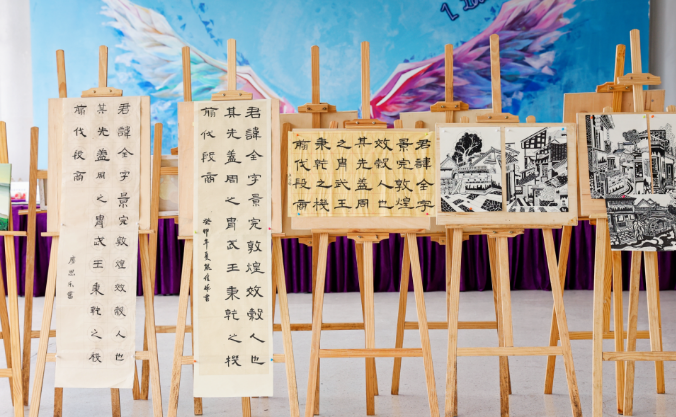 君諱全字景完敦煌效穀人也
其先蓋周之胄武王秉乾之機
翦伐殷商
君諱全字景完敦煌效穀人也
其先蓋周之胄武王秉乾之機
翦伐殷商
癸卯年夏
君諱全字
景完敦煌
效穀人也
其先蓋周
之胄武王
秉乾之機
翦伐殷商